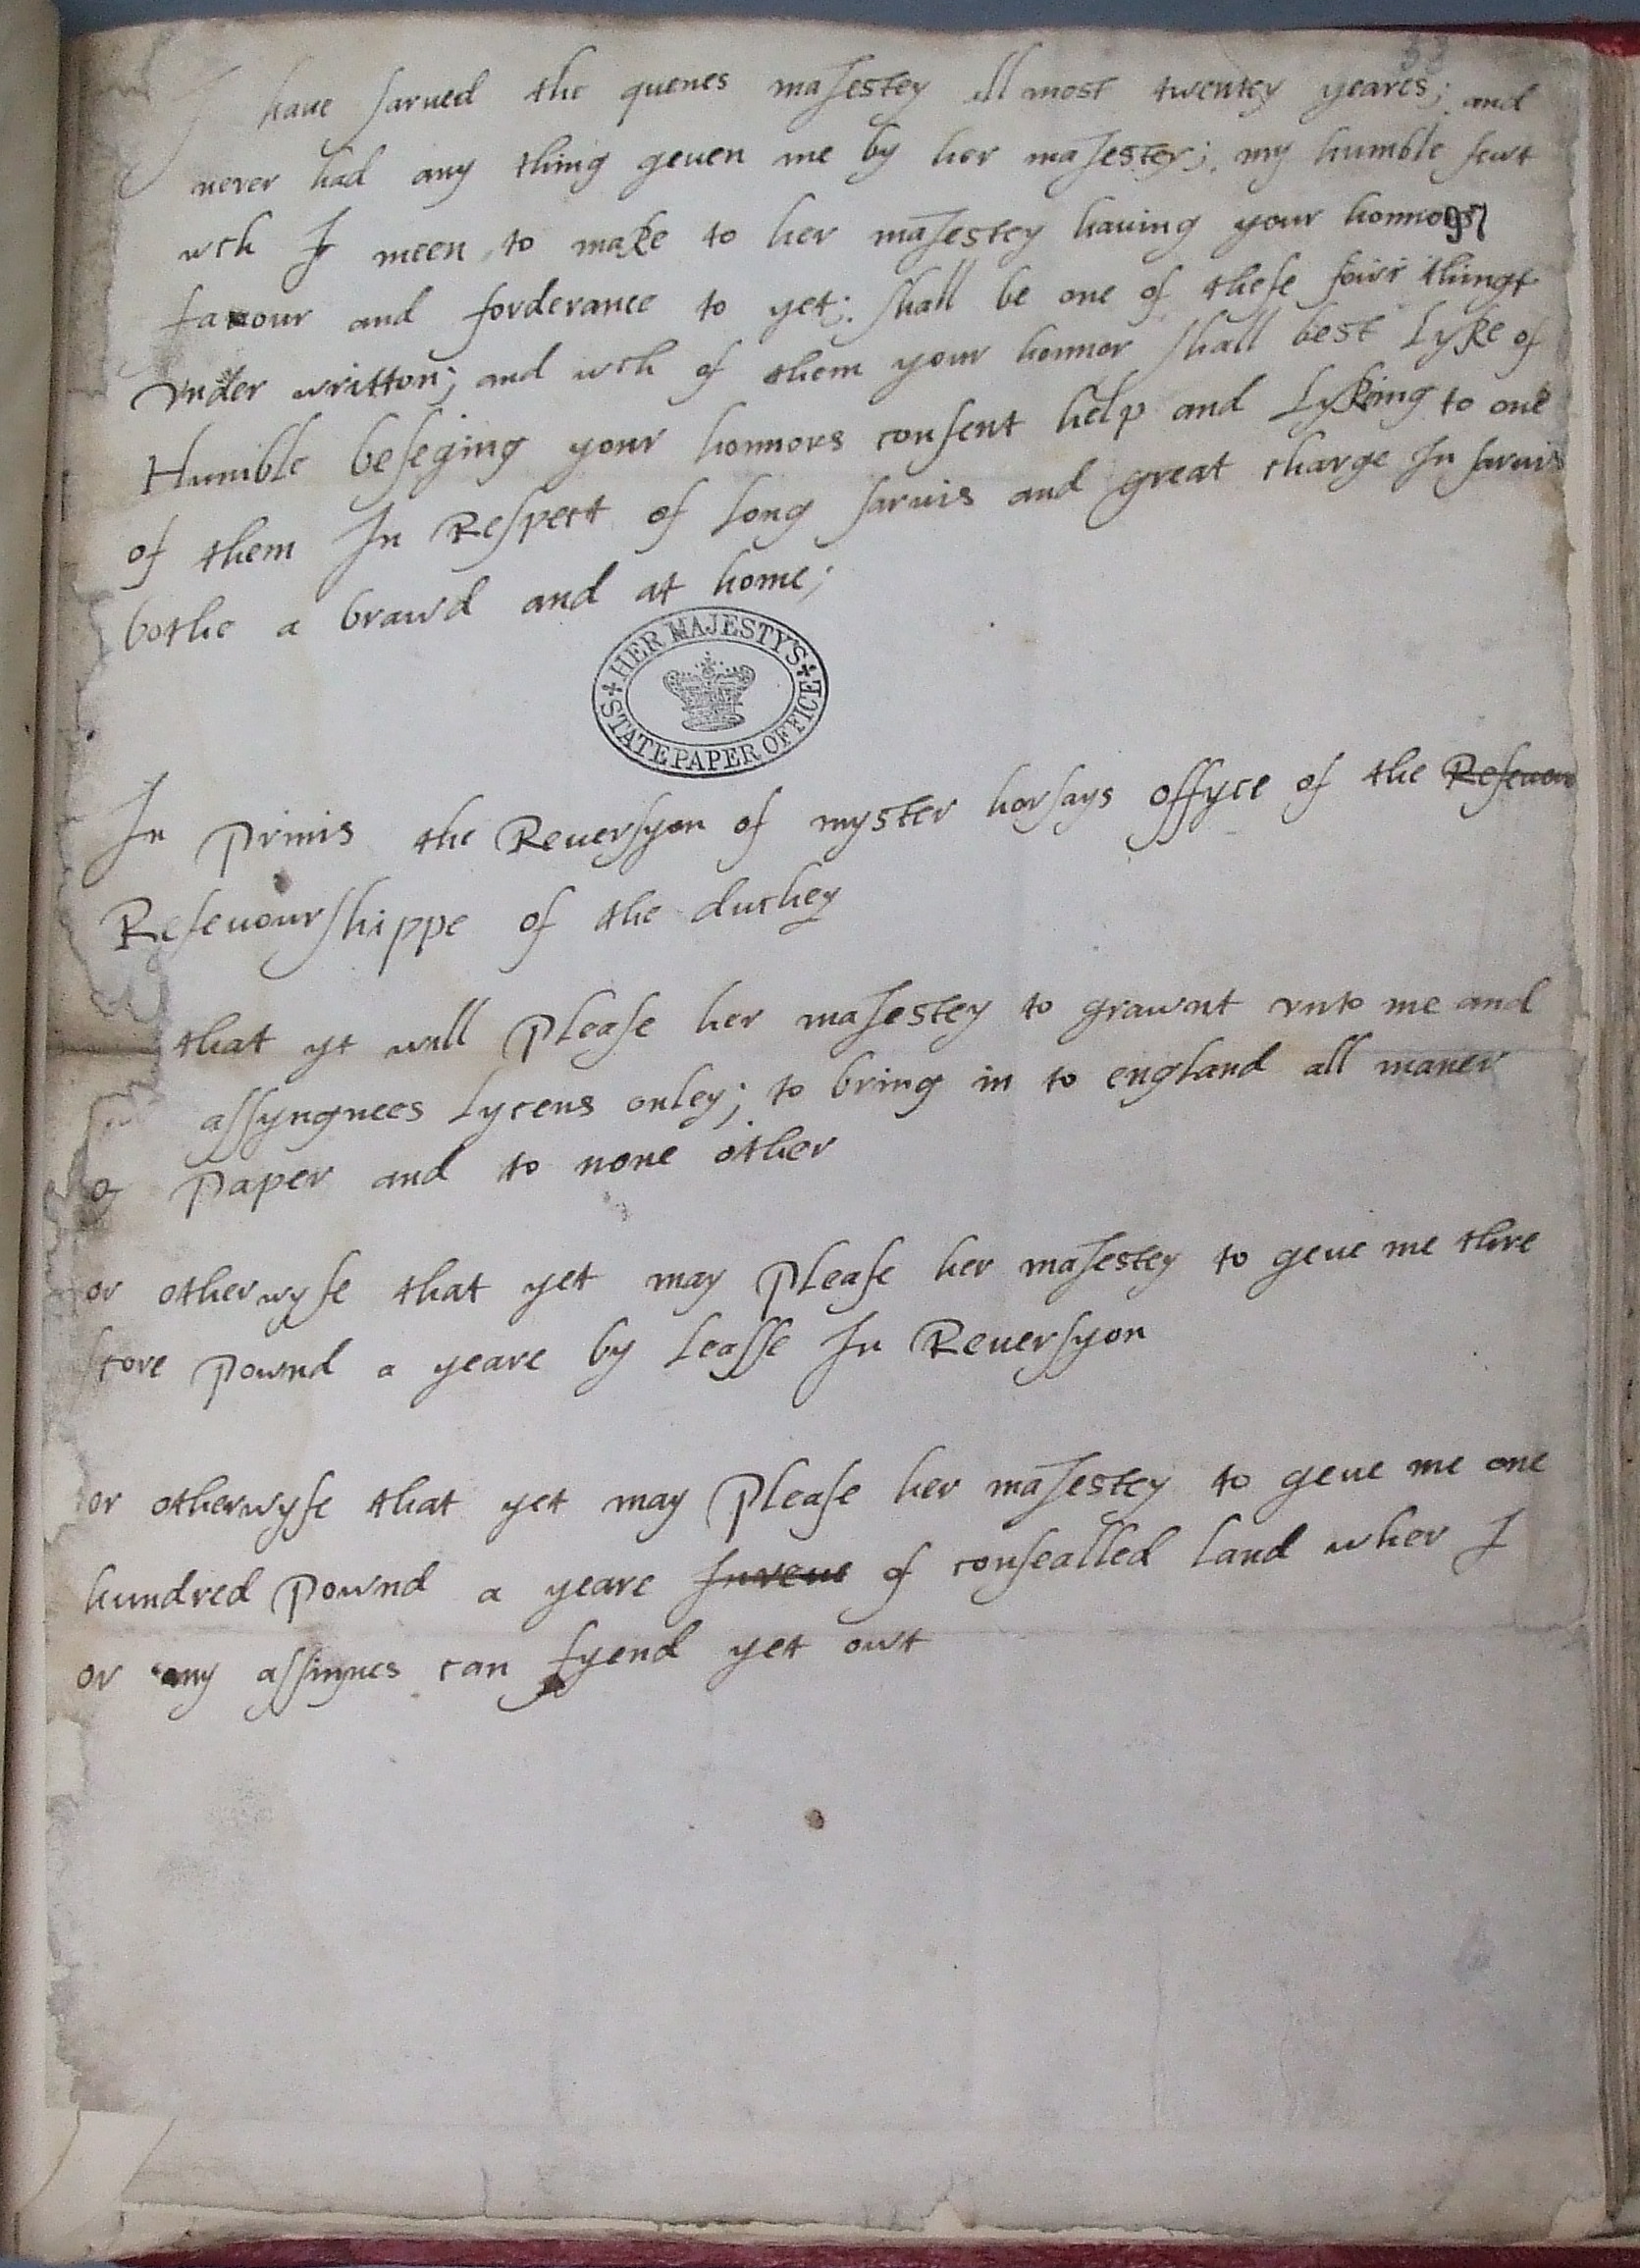 I have sarued the quenes maiestey all most twentey yeares; and
never had any thing geuen me by her maiestey; my humble sewt
wch I meen to make to her maiestey hauing your honnors
favour and forderance to yet; shall be one of these fowr things
vnder writton; and wch of them your honnor shall best Lyke of
Humble beseging your honnors consent help and Lyking to one
of them In Respect of Long saruis and great charge In saruis
bothe a brawd and at home;
HER MAJESTY'S STATE PAPER OFFICE
In primis the Reuersyon of myster horsays offyce of the Reseuou
Reseuourshippe of the duchey
that yt will please her maiestey to grawnt vnto me and
assyngnees Lycens onley; to bring in to england all maner
of paper and to none other
or otherwyse that yet may please her maiestey to geue me thre
score pownd a yeare by Leasse In Reuersyon
or otherwyse that yet may please her maiestey to geue me one
hundred pownd a yeare of consealled Land wher I
or my assinnes can fyend yet owt